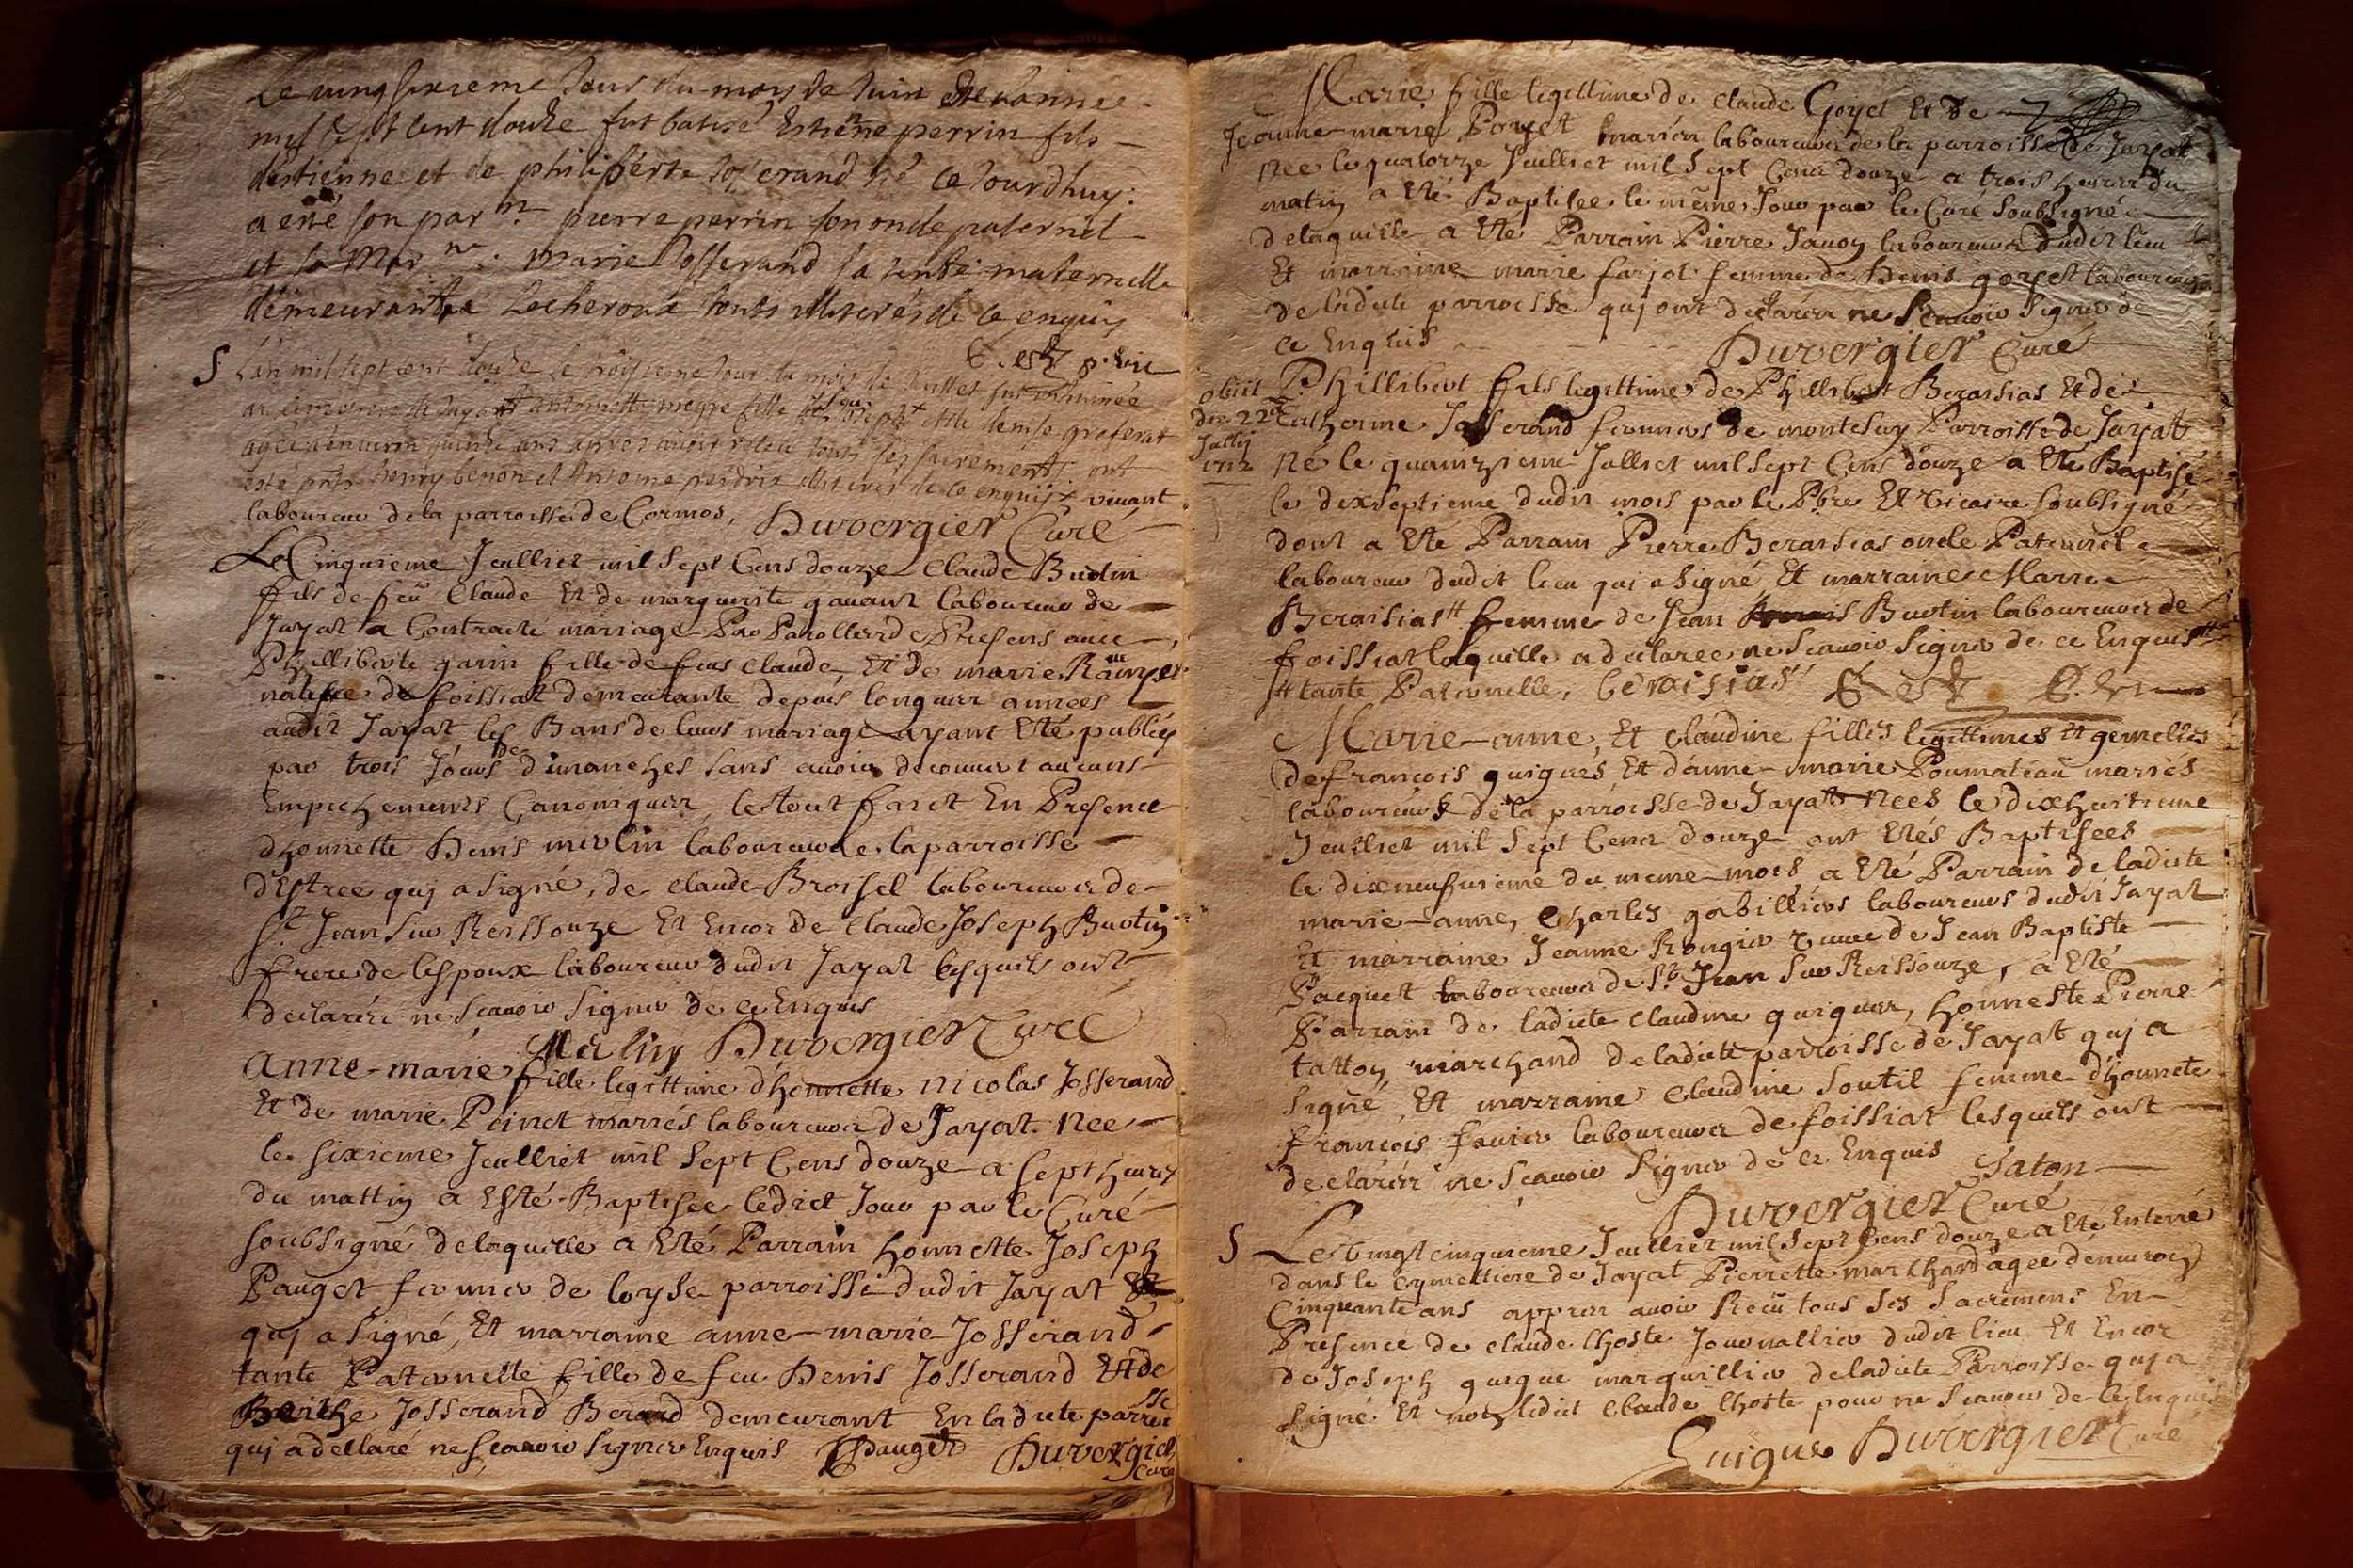 Le vingsixieme Jour du mois de Juin de lannee
mil sept cent douze fut batisé Estienne perrin fils
destienne et de philiberte Josserand né ce Jourdhuy.
a esté son par.n pierre perrin son oncle paternel
et sa Mar.ne marie Josserand sa tente maternelle
demeurant a Lecheroux touts illiterés de ce enquis
S Lan mil sept cent douze le troisieme Jour du mois de Juillet fut inhumée
au cimetiere de Jayat antoinette fille
agée denviron quinze ans apres avoir receu touts ses sacrements ont
esté pnts henry benon et Antoine perdrix illiterés de ce enquis vivant
laboureur de la parroisse de Cormos, Duvergier Curé
Le Cinquieme Jeulliet mil Sept Cens douze Claude Buotin
fils de feu Claude Et de marguerite gavant laboureur de
Jayat a Contracté mariage Par Parolles de Presens avec
Philliberte garin fille de feu Claude, Et de marie
natifve de foissiat demeurante depuis longues années
audit Jayat les Bans de leurs mariage ayant Eté publiés
par trois Jours de dimanches sans avoir decouvert aucuns
Empechements Canoniques, le tout faict En Presence
dhonnette Denis merlin laboureur de la parroisse
d'Estree quj a signé, de claude Broissel laboureur de
St. Jean Sur Reissouze Et Encor de Claude Joseph Buotin
frere de lespoux laboureur dudit Jayat lesquels ont
declarés ne Scavoir Signer de ce Enquis
Merlin Duvergier Curé
Anne-marie fille legittime d'honnette nicolas Josserand
Et de marie Poinet mariés laboureurs de Jayat. Nee
le sixieme Jeulliet mil Sept Cens douze a sept heures
du mattin a Esté Baptisee ledict Jour par le Curé
soubsigné de laquelle a Eté Parrain honnette Joseph
Pauget fermier de loyse parroisse dudit Jayat
quj a signé, Et marraine anne-marie Josserand
tante Paternelle fille de feu Denis Josserand Et de
Josserand Berard demeurant En ladite parroisse
quj a declaré ne scavoir signer Enquis JPauget Duvergier
Curé
Marie fille legittime de Claude Goyet Et de
Jeanne-marie Poryet mariés laboureurs de la parroisse de Jayat
née le quatorze Jeulliet mil Sept Cens douze a trois heures du
matin a Eté Baptisee le même Jour par le Curé Soubsigné
de laquelle a Eté Parrain Pierre Janoy laboureur dudit lieu
Et marraine marie farjot femme de Denis goyet laboureur
de ladite parroisse quj ont declarés ne Scavoir Signer de
ce Enquis Duvergier Curé
obiit Phillibert fils legittime de Phillibert Beraisias Et de
die 22a Catherine Josserand fermiers de montesuy Parroisse de Jayat
Jullij
1712 né le quainzieme Julliet mil Sept Cens douze a Eté Baptisé
le dixseptieme dudit mois par le Pbre Et Vicaire soubsigné
dont a Eté Parrain Pierre Beraisias oncle Paternel
laboureur dudit lieu qui a Signé, Et marraine Marie
Beraisias # femme de Jean Buotin laboureur de
foissiat laquelle a declaree ne Scavoir Signer de ce Enquis #
# tante Paternelle, beraisias
Marie-anne, Et Claudine filles legittimes Et gemelles
de francois guigues Et d'anne-marie Poumateau mariés
laboureurs de la parroisse de Jayat nees le dixhuitieme
Jeulliet mil Sept Cens douze ont Etés Baptisees
le dixneufvieme du meme mois a Eté Parrain de ladite
marie-anne, Charles gobilliers laboureur dudit Jayat
Et marraine Jeanne Rougier veuve de Jean Baptiste
Pacquet laboureur de St. Jean Sur Reissouze, a Eté
Parrain de ladite Claudine guigues, honneste Pierre
tatton marchand de ladite parroisse de Jayat quj a
signé, Et marraine Claudine Soutil femme d'honnete
francois favier laboureur de foissiat lesquels ont
declarés ne Scavoir Signer de ce Enquis Taton
Duvergier Curé
S Le vingt cinquieme Jeulliet mil Sept Cens douze a Eté Enterré
dans le cymettiere de Jayat Pierrette marchand agee denviron
Cinquante ans appres avoir Receu tous Ses Sacremens En
Presence de claude lhoste Journallier dudit lieu Et Encor
de Joseph guigue marguillier de ladite Parroisse quj a
signé Et non ledict Claude lhoste pour ne Scavoir de ce Enquis
Guigue Duvergier Curé